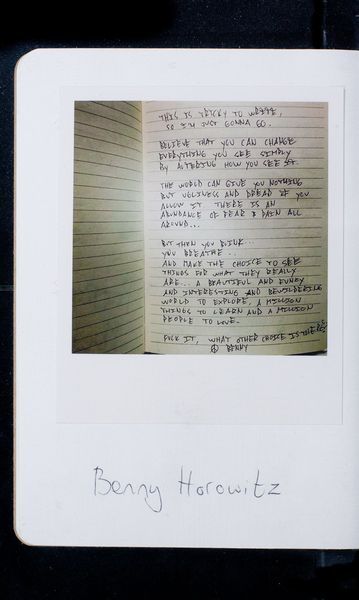 THIS IS TRICKY TO WRITE,
SO I'M JUST GONNA GO.
BELIEVE THAT YOU CAN CHANGE
EVERYTHING YOU SEE SIMPLY
BY ALTERING HOW YOU SEE IT.
THE WORLD CAN GIVE YOU NOTHING
BUT UGLINESS AND DREAD IF YOU
ALLOW IT THERE IS AN
ABUNDANCE OF FEAR & PAIN ALL
AROUND...
BUT THEN YOU BLINK...
YOU BREATHE...
AND MAKE THE CHOICE TO SEE
THINGS FOR WHAT THEY REALLY
ARE... A BEAUTIFUL AND FUNNY
AND INTERESTING AND BEWILDERING
WORLD TO EXPLORE, A MILLION
THINGS TO LEARN AND A MILLION
PEOPLE TO LOVE.
FUCK IT, WHAT OTHER CHOICE IS THERE?
BENNY
Benny Horowitz